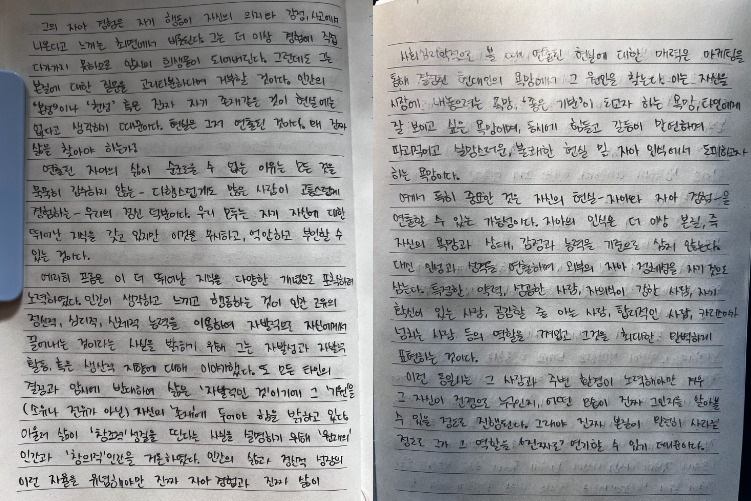 그의 자아 경험은 자기 행동이 자신의 의지와 감정, 사고에서
나온다고 느끼는 최면에서 비롯된다. 그는 더 이상 경험에 직접
다가가지 못하므로 암시의 희생물이 되어버린다. 그런데도 그는
본질에 대한 질문을 고리타분하다며 거부할 것이다. 인간의
'본성'이나 '천성' 혹은 진짜 자기 존재같은 것이 현실에는
없다고 생각하기 때문이다. 현실은 그저 연출된 것이다. 왜 진짜
삶을 찾아야 하는가?
연출된 자아의 삶이 순조로울 수 없는 이유는 모든 것을
묵묵히 감수하지 않는 - 다행스럽게도 많은 사람이 고통스럽게
경험하는 - 우리의 정신 덕분이다. 우리 모두는 자기 자신에 대한
뛰어난 지식을 갖고 있지만 이것을 무시하고, 억압하고 부인할 수
있는 것이다.
에리히 프롬은 이 더 뛰어난 지식을 다양한 개념으로 포착하려
노력하였다. 인간이 생각하고 느끼고 행동하는 것이 인간 고유의
정신적, 심리적, 신체적 능력을 이용하여 자발적으로 자신에게서
끌어내는 것이라는 사실을 밝히기 위해 그는 자발성과 자발적
활동, 혹은 생산적 지향에 대해 이야기했다. 또 모든 타인의
결정과 암시에 반대하여 삶은 '자발적인 것'이기에 그 '기원'을
(소유나 전유가 아닌) 자신의 '존재'에 두어야 함을 밝히고 있다
아울러 삶이 '창조적' 성격을 띤다는 사실을 설명하기 위해
인간과 '창의적' 인간을 거론하였다. 인간의 삶과 정신적 성장의
이런 자율을 유념해야만 진짜 자아 경험과 진짜 삶이
사회심리학적으로 볼 때 연출된 현실에 대한 매력은 마케팅을
통해 길러진 현대인의 욕망에서 그 원인을 찾는다. 이는 자신을
시장에 내놓으려는 욕망, '좋은 기분'이 되고자 하는 욕망, 타인에게
잘 보이고 싶은 욕망이며, 동시에 힘들고 갈등이 만연하며
파괴적이고 실망스러운, 불쾌한 현실 및 자아 인식에서 도피하고자
하는 욕망이다.
여기서 특히 중요한 것은 자신의 현실-자아와 자아 경험-을
연출할 수 있는 가능성이다. 자아의 인식은 더 이상 본질, 즉
자신의 욕망과 상태, 감정과 능력을 기준으로 삼지 않는다.
대신 인성과 성격을 연출하며, 외부의 자아 정체성을 자기 것으로
삼는다. 특출한 약력, 성공한 사람, 자의식이 강한 사람, 자기
확신이 있는 사람, 공감할 줄 아는 사람, 탐미적인 사람, 카리스마가
넘치는 사람 등의 역할을 끼워입고 그것을 최대한 완벽하게
표현하는 것이다.
이런 동일시는 그 사람과 주변 환경이 노력해야만 겨우
그 자신이 진정으로 누구인지, 어떤 모습이 진짜 그인지를 알아볼
수 있을 정도로 진행된다. 그래야 진짜 본질이 완전히 사라질
정도로 그가 그 역할을 '진짜로' 연기할 수 있기 때문이다.